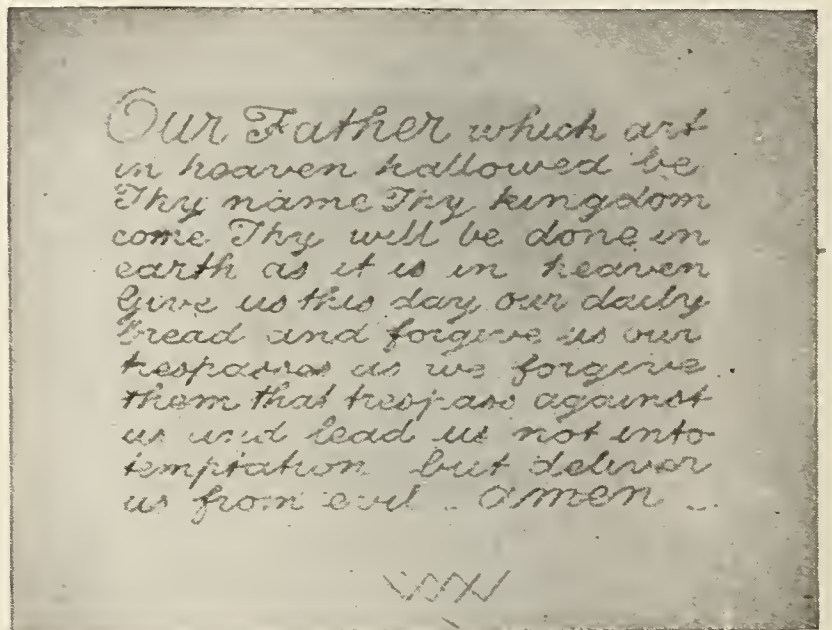 Our Father which art
in heaven hallowed be
Thy name Thy kingdom
come Thy will be done in
earth as it is in heaven
Give us this day our daily
bread and forgive us our
trespasses as we forgive
them that trespass against
us and lead us not into
temptation but deliver
us from evil .. amen ...